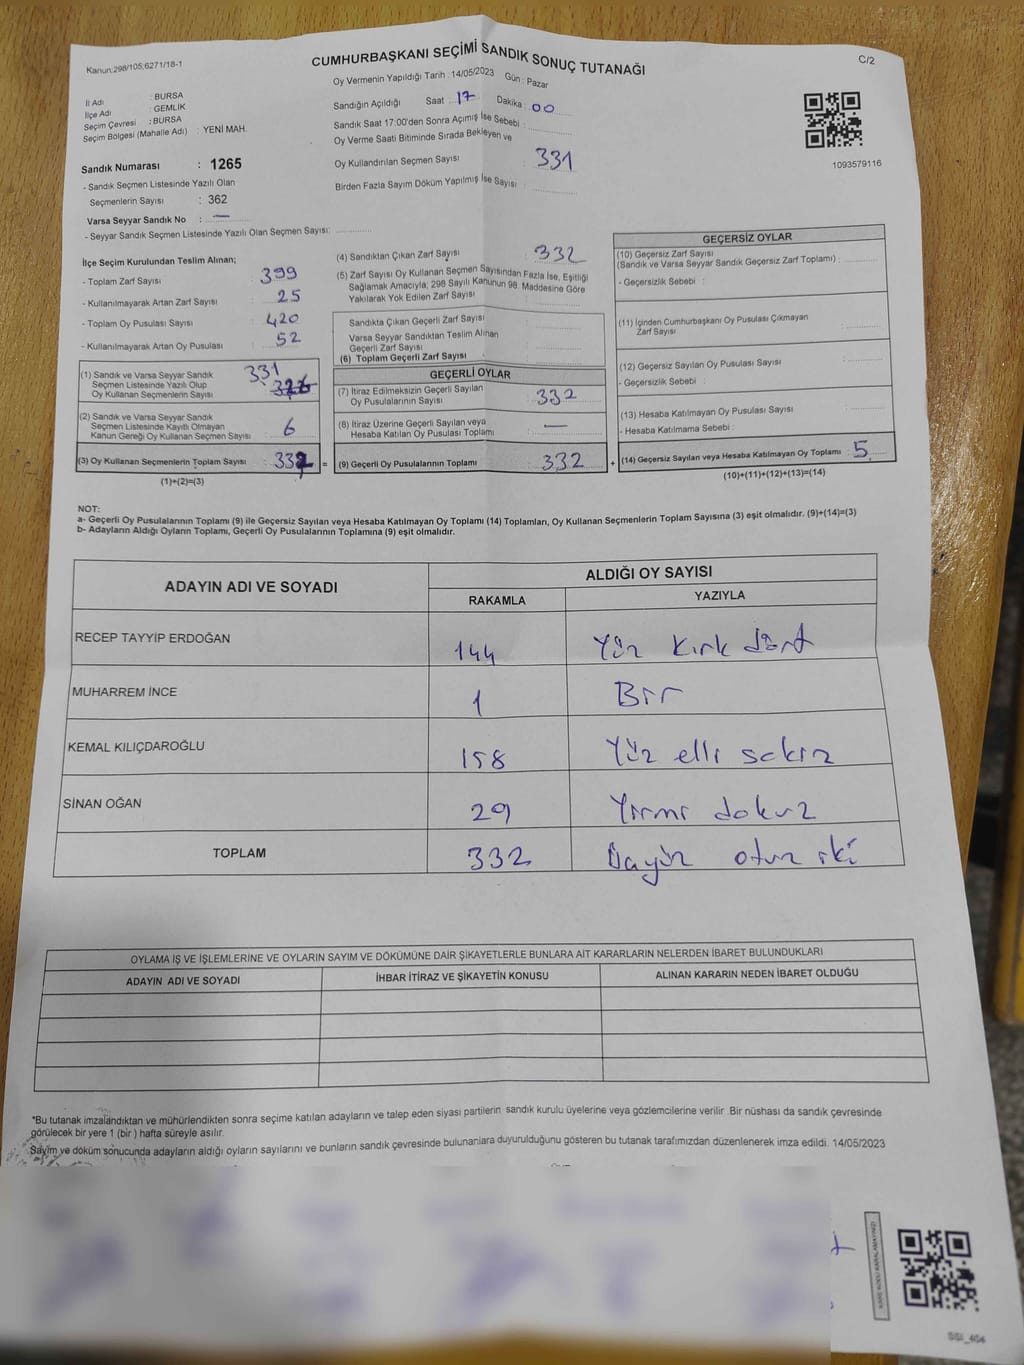 Kanun:298/105;6271/18-1
CUMHURBAŞKANI SEÇİMİ SANDIK SONUÇ TUTANAĞI
C/2
Oy Vermenin Yapıldığı Tarih : 14/05/2023 Gün : Pazar
İl Adı : BURSA
İlçe Adı : GEMLİK
Seçim Çevresi : BURSA
Seçim Bölgesi (Mahalle Adı) : YENİ MAH.
Sandığın Açıldığı Saat : 17 Dakika : 00
Sandık Saat 17:00'den Sonra Açımış İse Sebebi :
Oy Verme Saati Bitiminde Sırada Bekleyen ve
Oy Kullandırılan Seçmen Sayısı : 331
Birden Fazla Sayım Döküm Yapılmış İse Sayısı :
1093579116
Sandık Numarası : 1265
- Sandık Seçmen Listesinde Yazılı Olan
Seçmenlerin Sayısı : 362
Varsa Seyyar Sandık No : —
- Seyyar Sandık Seçmen Listesinde Yazılı Olan Seçmen Sayısı:
İlçe Seçim Kurulundan Teslim Alınan;
- Toplam Zarf Sayısı : 399
- Kullanılmayarak Artan Zarf Sayısı : 25
- Toplam Oy Pusulası Sayısı : 420
- Kullanılmayarak Artan Oy Pusulası : 52
(1) Sandık ve Varsa Seyyar Sandık
Seçmen Listesinde Yazılı Olup
Oy Kullanan Seçmenlerin Sayısı : 331
(2) Sandık ve Varsa Seyyar Sandık
Seçmen Listesinde Kayıtlı Olmayan
Kanun Gereği Oy Kullanan Seçmen Sayısı : 6
(3) Oy Kullanan Seçmenlerin Toplam Sayısı :
(1)+(2)=(3)
(4) Sandıktan Çıkan Zarf Sayısı : 332
(5) Zarf Sayısı Oy Kullanan Seçmen Sayısından Fazla İse, Eşitliği
Sağlamak Amacıyla; 298 Sayılı Kanunun 98. Maddesine Göre
Yakılarak Yok Edilen Zarf Sayısı :
Sandıkta Çıkan Geçerli Zarf Sayısı :
Varsa Seyyar Sandıktan Teslim Alınan
Geçerli Zarf Sayısı :
(6) Toplam Geçerli Zarf Sayısı :
GEÇERLİ OYLAR
(7) İtiraz Edilmeksizin Geçerli Sayılan
Oy Pusulalarının Sayısı : 332
(8) İtiraz Üzerine Geçerli Sayılan veya
Hesaba Katılan Oy Pusulası Toplamı : —
= (9) Geçerli Oy Pusulalarının Toplamı : 332
GEÇERSİZ OYLAR
(10) Geçersiz Zarf Sayısı
(Sandık ve Varsa Seyyar Sandık Geçersiz Zarf Toplamı) :
- Geçersizlik Sebebi :
(11) İçinden Cumhurbaşkanı Oy Pusulası Çıkmayan
Zarf Sayısı :
(12) Geçersiz Sayılan Oy Pusulası Sayısı :
- Geçersizlik Sebebi :
(13) Hesaba Katılmayan Oy Pusulası Sayısı :
- Hesaba Katılmama Sebebi :
+ (14) Geçersiz Sayılan veya Hesaba Katılmayan Oy Toplamı : 5
(10)+(11)+(12)+(13)=(14)
NOT:
a- Geçerli Oy Pusulalarının Toplamı (9) ile Geçersiz Sayılan veya Hesaba Katılmayan Oy Toplamı (14) Toplamları, Oy Kullanan Seçmenlerin Toplam Sayısına (3) eşit olmalıdır. (9)+(14)=(3)
b- Adayların Aldığı Oyların Toplamı, Geçerli Oy Pusulalarının Toplamına (9) eşit olmalıdır.
ADAYIN ADI VE SOYADI
ALDIĞI OY SAYISI
RAKAMLA YAZIYLA
RECEP TAYYİP ERDOĞAN 144 Yüz kırk dört
MUHARREM İNCE 1 Bir
KEMAL KILIÇDAROĞLU 158 Yüz elli sekiz
SİNAN OĞAN 29 Yirmi dokuz
TOPLAM 332 Üçyüz otuz iki
OYLAMA İŞ VE İŞLEMLERİNE VE OYLARIN SAYIM VE DÖKÜMÜNE DAİR ŞİKAYETLERLE BUNLARA AİT KARARLARIN NELERDEN İBARET BULUNDUKLARI
ADAYIN ADI VE SOYADI İHBAR İTİRAZ VE ŞİKAYETİN KONUSU ALINAN KARARIN NEDEN İBARET OLDUĞU
*Bu tutanak imzalandıktan ve mühürlendikten sonra seçime katılan adayların ve talep eden siyasi partilerin sandık kurulu üyelerine veya gözlemcilerine verilir .Bir nüshası da sandık çevresinde
görülecek bir yere 1 (bir ) hafta süreyle asılır.
Sayım ve döküm sonucunda adayların aldığı oyların sayılarını ve bunların sandık çevresinde bulunanlara duyurulduğunu gösteren bu tutanak tarafımızdan düzenlenerek imza edildi. 14/05/2023